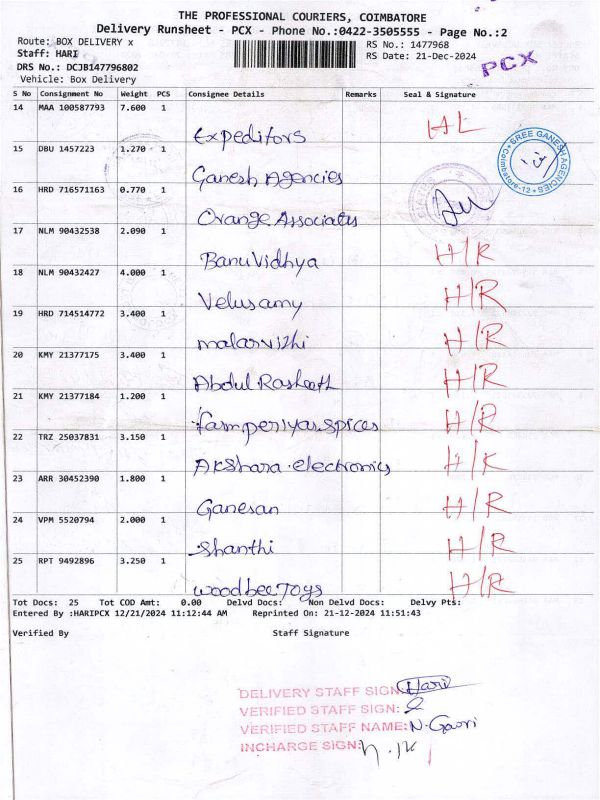 THE PROFESSIONAL COURIERS, COIMBATORE
Delivery Runsheet - PCX - Phone No.:0422-3505555 - Page No.:2
Route: BOX DELIVERY x
RS No.: 1477968
Staff: HARI
RS Date: 21-Dec-2024
PCX
DRS No.: DCJB147796802
Vehicle: Box Delivery
S No Consignment No Weight PCS Consignee Details Remarks Seal & Signature
14 MAA 100587793 7.600 1
Expeditors
15 DBU 1457223 1.270 1
SREE GANESH AGENCIES
Coimbatore-12
Ganesh Agencies
16 HRD 716571163 0.770 1
Orange Associates
17 NLM 90432538 2.090 1
BanuVidhya H/R
18 NLM 90432427 4.000 1
Velusamy H/R
19 HRD 714514772 3.400 1
malarvizhi H/R
20 KMY 21377175 3.400 1
Abdul Rasheeth H/R
21 KMY 21377184 1.200 1
famperiyar.spices H/R
22 TRZ 25037831 3.150 1
Akshara.electronics H/R
23 ARR 30452390 1.800 1
Ganesan H/R
24 VPM 5520794 2.000 1
Shanthi H/R
25 RPT 9492896 3.250 1
woodbeeToys H/R
Tot Docs: 25 Tot COD Amt: 0.00 Delvd Docs: Non Delvd Docs: Delvy Pts:
Entered By :HARIPCX 12/21/2024 11:12:44 AM Reprinted On: 21-12-2024 11:51:43
Verified By Staff Signature
DELIVERY STAFF SIGN: Hari
VERIFIED STAFF SIGN:
VERIFIED STAFF NAME: N-Gowri
INCHARGE SIGN: